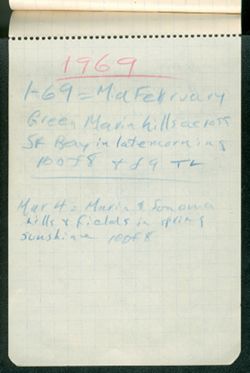 1969
1-69 = Mid February
Green Marin hills across
SF Bay in late morning
100 f8 + f9 TL
Mar 4 = Marin & Sonoma
hills & fields in spring
sunshine 100 f8